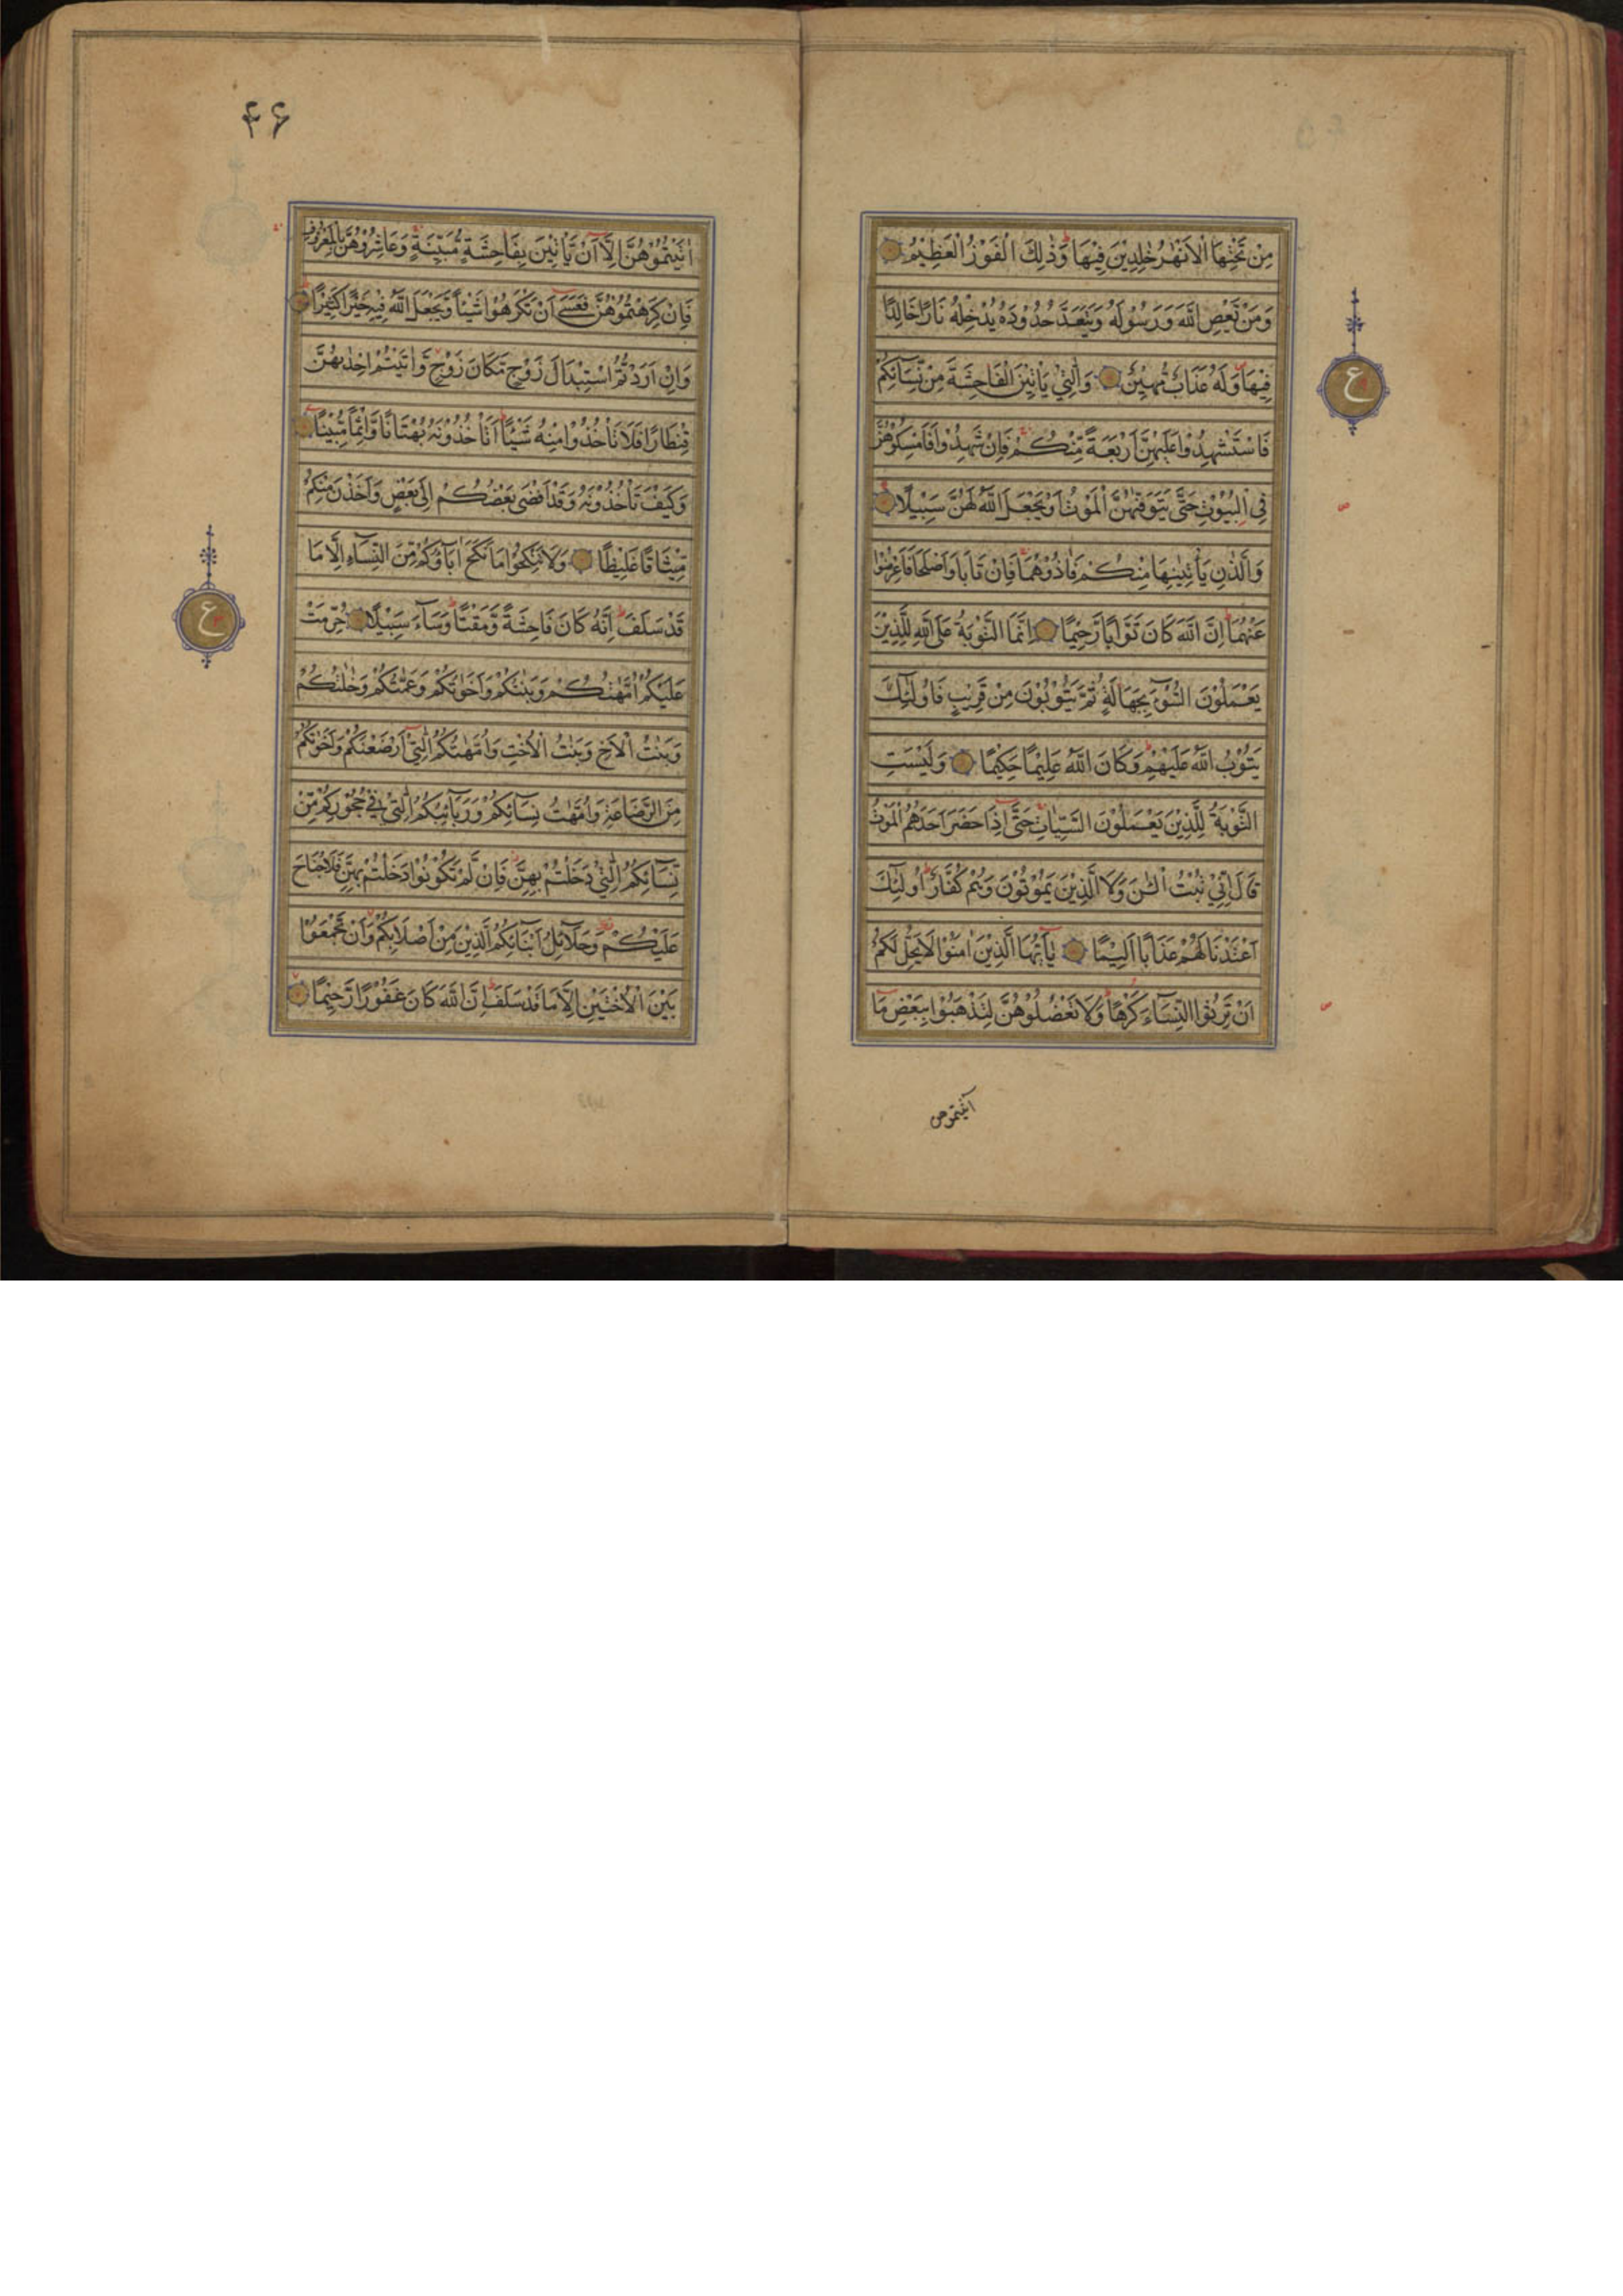 مِنْ تَحْتِهَا الْاَنْهٰرُ خٰلِدِيْنَ فِيْهَا ؕ وَذٰلِكَ الْفَوْزُ الْعَظِيْمُ
وَمَنْ يَّعْصِ اللّٰهَ وَرَسُوْلَهُ وَيَتَعَدَّ حُدُوْدَهُ يُدْخِلْهُ نَارًا خَالِدًا
فِيْهَا وَلَهُ عَذَابٌ مُّهِيْنٌ وَالّٰتِيْ يَاْتِيْنَ الْفَاحِشَةَ مِنْ نِّسَآئِكُمْ
فَاسْتَشْهِدُوْا عَلَيْهِنَّ اَرْبَعَةً مِّنْكُمْ فَاِنْ شَهِدُوْا فَاَمْسِكُوْهُنَّ
فِي الْبُيُوْتِ حَتّٰى يَتَوَفّٰهُنَّ الْمَوْتُ اَوْ يَجْعَلَ اللّٰهُ لَهُنَّ سَبِيْلًا
وَالَّذٰنِ يَاْتِيٰنِهَا مِنْكُمْ فَاٰذُوْهُمَا فَاِنْ تَابَا وَاَصْلَحَا فَاَعْرِضُوْا
عَنْهُمَا ؕ اِنَّ اللّٰهَ كَانَ تَوَّابًا رَّحِيْمًا اِنَّمَا التَّوْبَةُ عَلَى اللّٰهِ لِلَّذِيْنَ
يَعْمَلُوْنَ السُّوْٓءَ بِجَهَالَةٍ ثُمَّ يَتُوْبُوْنَ مِنْ قَرِيْبٍ فَاُولٰٓئِكَ
يَتُوْبُ اللّٰهُ عَلَيْهِمْ ؕ وَكَانَ اللّٰهُ عَلِيْمًا حَكِيْمًا وَلَيْسَتِ
التَّوْبَةُ لِلَّذِيْنَ يَعْمَلُوْنَ السَّيِّاٰتِ حَتّٰٓى اِذَا حَضَرَ اَحَدَهُمُ الْمَوْتُ
قَالَ اِنِّيْ تُبْتُ الْـٰٔنَ وَلَا الَّذِيْنَ يَمُوْتُوْنَ وَهُمْ كُفَّارٌ ؕ اُولٰٓئِكَ
اَعْتَدْنَا لَهُمْ عَذَابًا اَلِيْمًا يٰٓاَيُّهَا الَّذِيْنَ اٰمَنُوْا لَا يَحِلُّ لَكُمْ
اَنْ تَرِثُوا النِّسَآءَ كَرْهًا ؕ وَلَا تَعْضُلُوْهُنَّ لِتَذْهَبُوْا بِبَعْضِ مَآ
آتيتموهن
ع
۴۶
اٰتَيْتُمُوْهُنَّ اِلَّآ اَنْ يَّاْتِيْنَ بِفَاحِشَةٍ مُّبَيِّنَةٍ وَعَاشِرُوْهُنَّ بِالْمَعْرُوْفِ
فَاِنْ كَرِهْتُمُوْهُنَّ فَعَسٰٓى اَنْ تَكْرَهُوْا شَيْئًا وَّيَجْعَلَ اللّٰهُ فِيْهِ خَيْرًا كَثِيْرًا
وَاِنْ اَرَدْتُّمُ اسْتِبْدَالَ زَوْجٍ مَّكَانَ زَوْجٍ وَّاٰتَيْتُمْ اِحْدٰىهُنَّ
قِنْطَارًا فَلَا تَاْخُذُوْا مِنْهُ شَيْئًا ؕ اَتَاْخُذُوْنَهُ بُهْتَانًا وَّاِثْمًا مُّبِيْنًا
وَكَيْفَ تَاْخُذُوْنَهُ وَقَدْ اَفْضٰى بَعْضُكُمْ اِلٰى بَعْضٍ وَّاَخَذْنَ مِنْكُمْ
مِّيْثَاقًا غَلِيْظًا وَلَا تَنْكِحُوْا مَا نَكَحَ اٰبَآؤُكُمْ مِّنَ النِّسَآءِ اِلَّا مَا
قَدْ سَلَفَ ؕ اِنَّهُ كَانَ فَاحِشَةً وَّمَقْتًا ؕ وَسَآءَ سَبِيْلًا حُرِّمَتْ
عَلَيْكُمْ اُمَّهٰتُكُمْ وَبَنٰتُكُمْ وَاَخَوٰتُكُمْ وَعَمّٰتُكُمْ وَخٰلٰتُكُمْ
وَبَنٰتُ الْاَخِ وَبَنٰتُ الْاُخْتِ وَاُمَّهٰتُكُمُ الّٰتِيْٓ اَرْضَعْنَكُمْ وَاَخَوٰتُكُمْ
مِنَ الرَّضَاعَةِ وَاُمَّهٰتُ نِسَآئِكُمْ وَرَبَآئِبُكُمُ الّٰتِيْ فِيْ حُجُوْرِكُمْ مِّنْ
نِّسَآئِكُمُ الّٰتِيْ دَخَلْتُمْ بِهِنَّ فَاِنْ لَّمْ تَكُوْنُوْا دَخَلْتُمْ بِهِنَّ فَلَا جُنَاحَ
عَلَيْكُمْ وَحَلَآئِلُ اَبْنَآئِكُمُ الَّذِيْنَ مِنْ اَصْلَابِكُمْ وَاَنْ تَجْمَعُوْا
بَيْنَ الْاُخْتَيْنِ اِلَّا مَا قَدْ سَلَفَ ؕ اِنَّ اللّٰهَ كَانَ غَفُوْرًا رَّحِيْمًا
ع